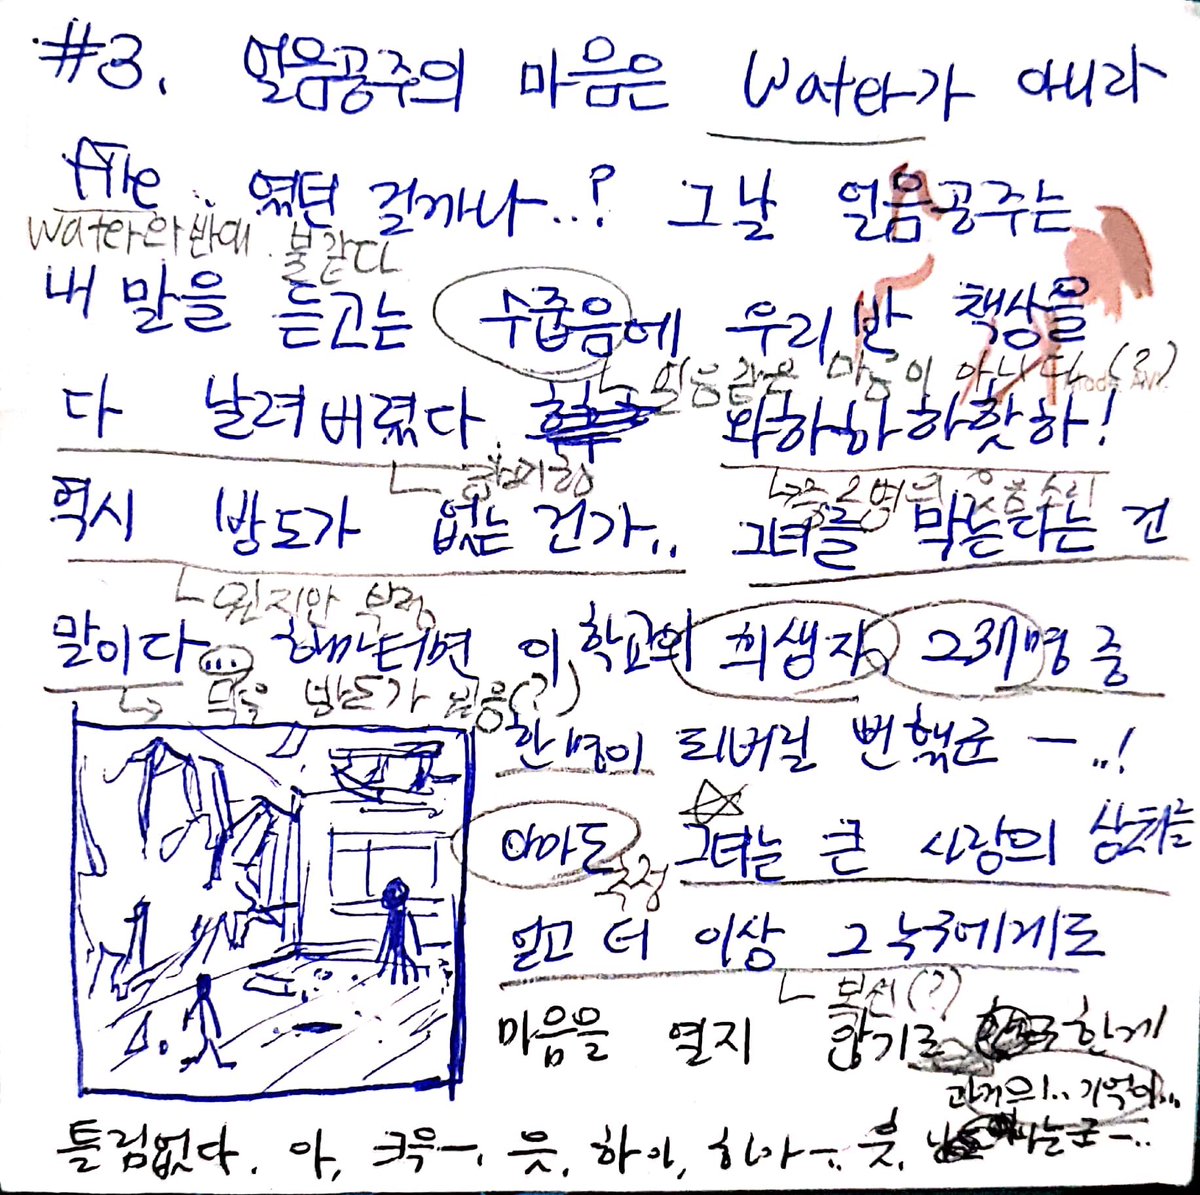 #3. 얼음공주의 마음은 water가 아니라
fire였던 걸까나..? 그날 얼음공주는
water와 반대 불같다
내 말을 듣고는 수줍음에 우리반 책상을
얼음같은 마음이 아니다(?)
다 날려버렸다. 와하하하핫하!
주인공의 웃음소리
역시 방도가 없는건가.. 그녀를 막는다는 건
왠지 안
말이다... 하마터면 이 학교의 희생자, 그 37명 중
막을 방도가 없음(?)
한 명이 되버릴 뻔했군-..!
아마도 그녀는 큰 사랑의 상처를
추정
얻고 더 이상 그 누구에게도
복선(?)
마음을 열지 않기로 한게
과거의.. 기억이...
틀림없다. 아, 크윽-. 읏, 하아, 하아-. 읏,